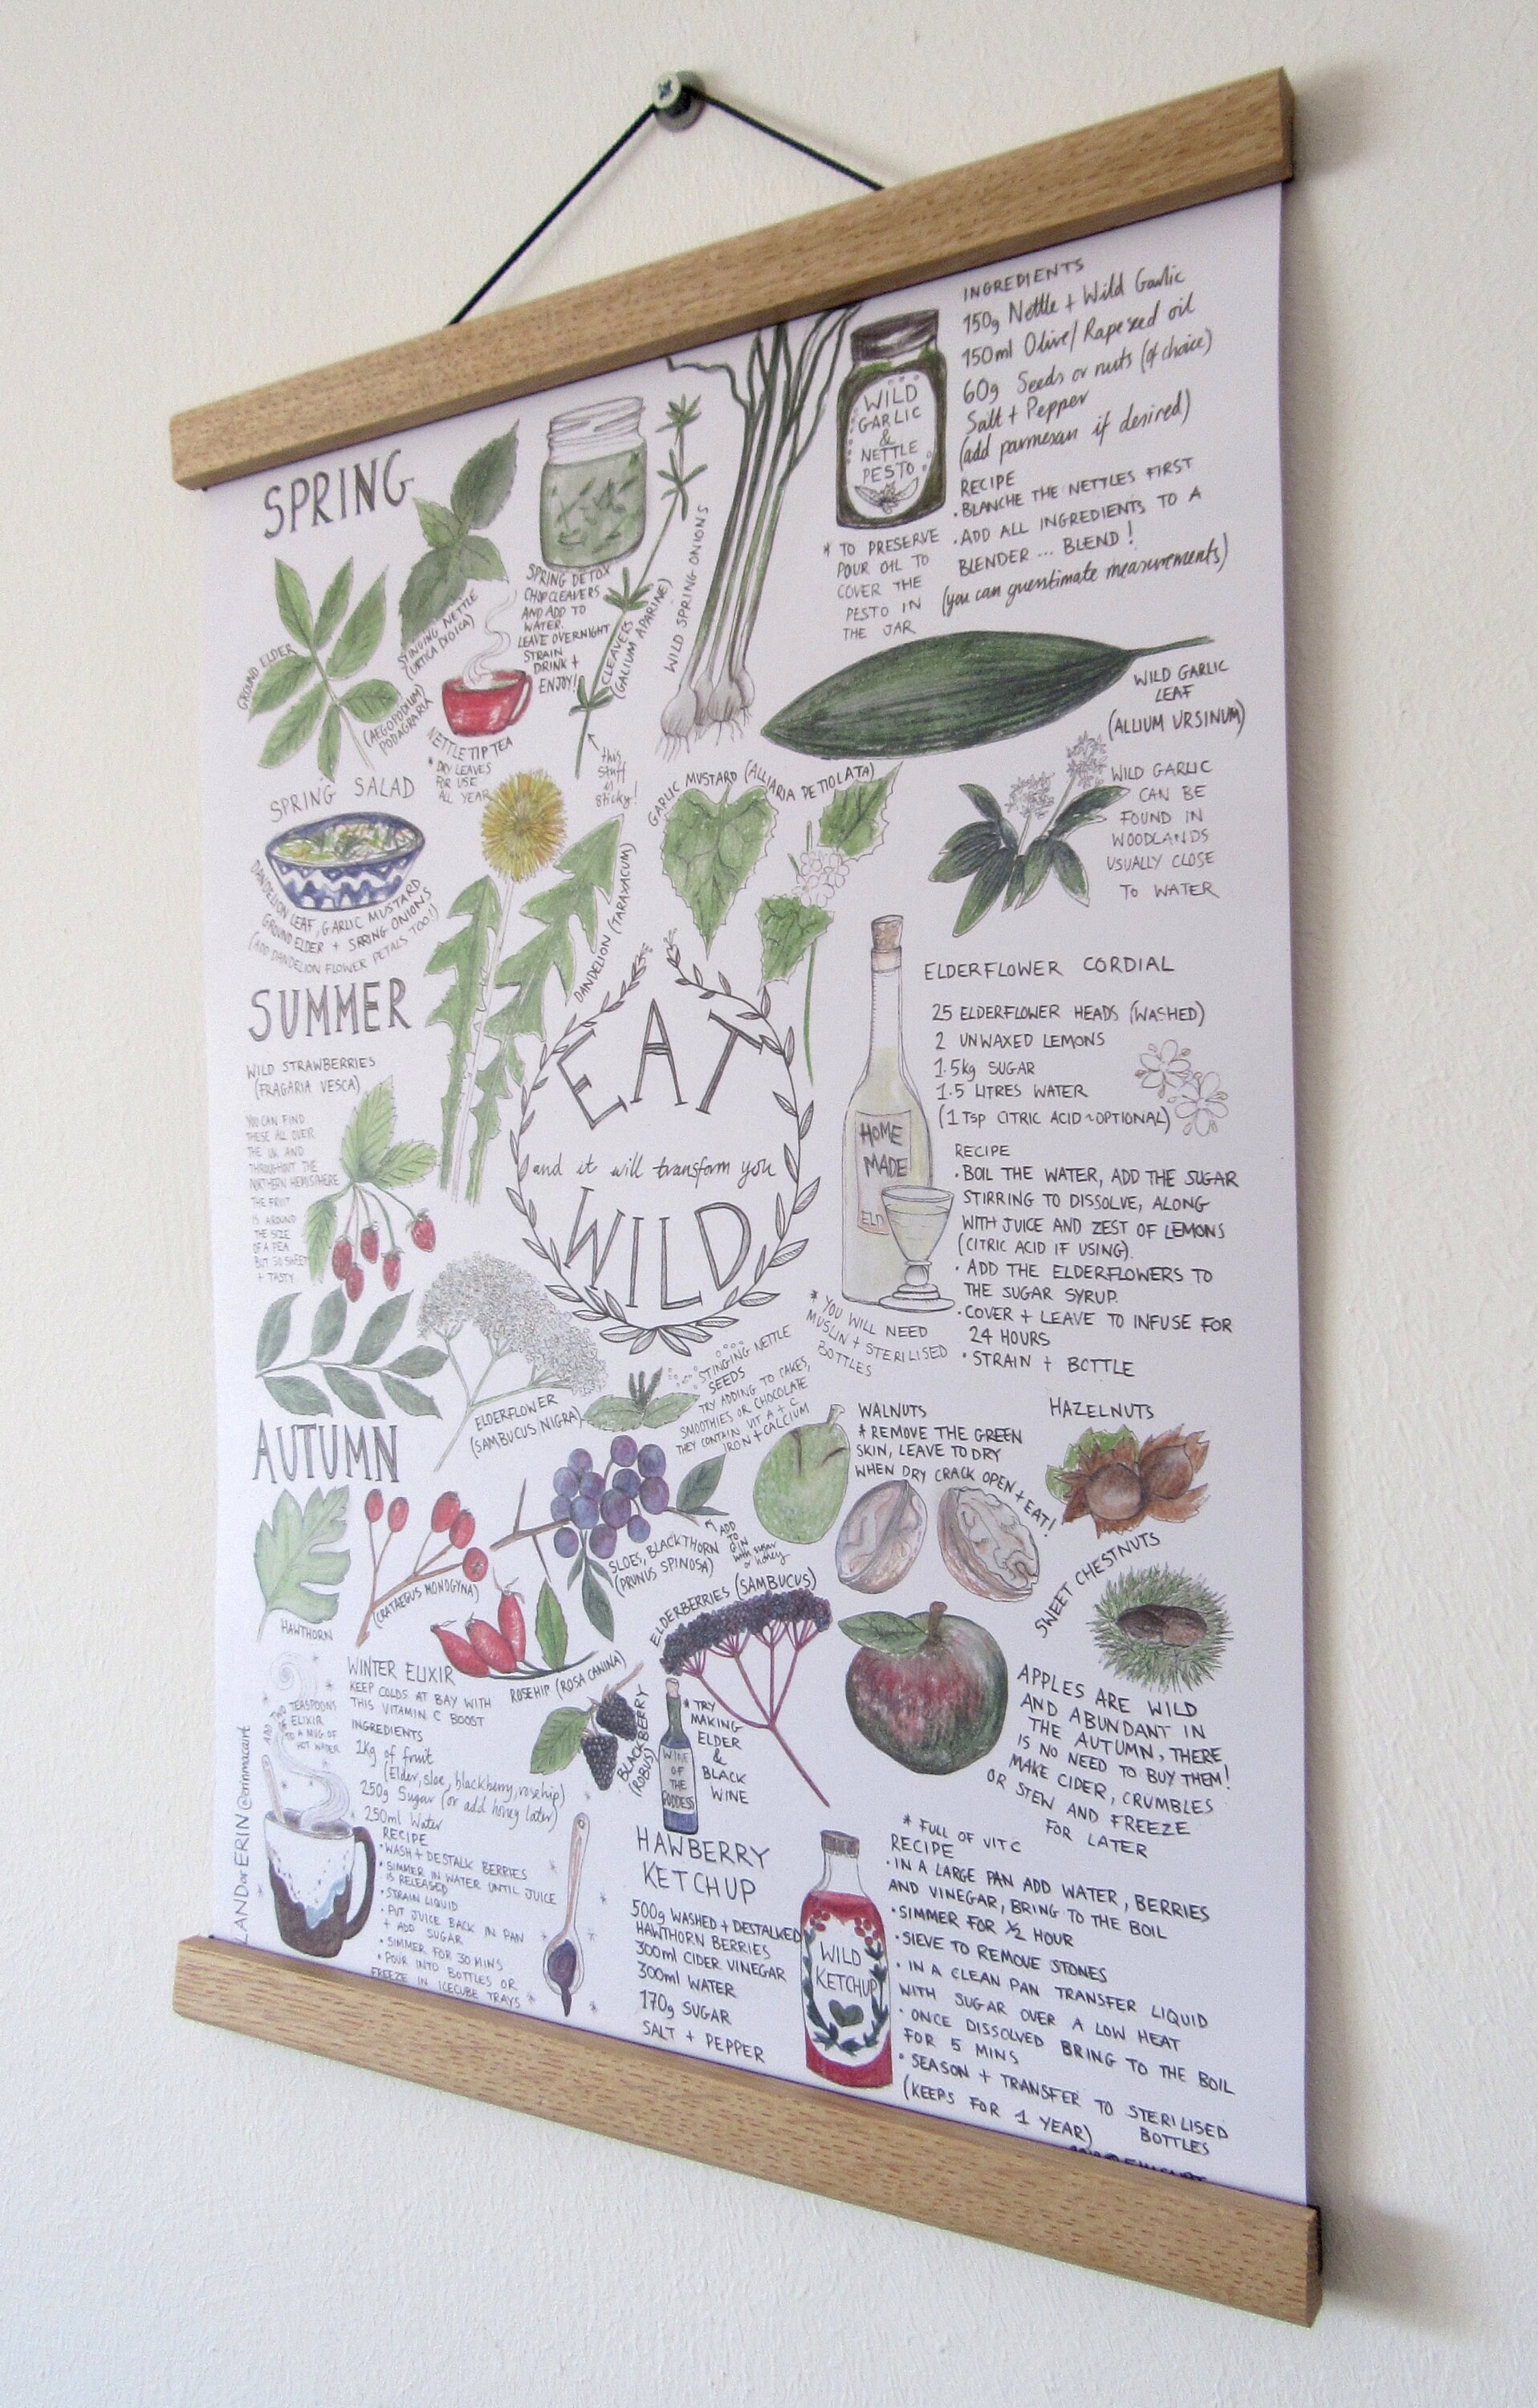 SPRING
GROUND ELDER
(AEGOPODIUM
PODAGRARIA
STINGING NETTLE
(URTICA DIOICA)
NETTLE TIP TEA
* DRY LEAVES
FOR USE
ALL YEAR
SPRING DETOX
CHOP CLEAVERS
AND ADD TO
WATER.
LEAVE OVERNIGHT
STRAIN
DRINK +
ENJOY!
CLEAVERS
(GALIUM APARINE)
this
stuff
is
sticky!
WILD SPRING ONIONS
WILD
GARLIC
&
NETTLE
PESTO
* TO PRESERVE
POUR OIL TO
COVER THE
PESTO IN
THE JAR
INGREDIENTS
150g Nettle + Wild Garlic
150ml Olive/Rapeseed oil
60g Seeds or nuts (of choice)
Salt + Pepper
(add parmesan if desired)
RECIPE
• BLANCHE THE NETTLES FIRST
• ADD ALL INGREDIENTS TO A
BLENDER ... BLEND!
(you can guesstimate measurements)
WILD GARLIC
LEAF
(ALLIUM URSINUM)
WILD GARLIC
CAN BE
FOUND IN
WOODLANDS
USUALLY CLOSE
TO WATER
SPRING SALAD
DANDELION LEAF, GARLIC MUSTARD
GROUND ELDER + SPRING ONIONS
(ADD DANDELION FLOWER PETALS TOO!)
DANDELION (TARAXACUM)
GARLIC MUSTARD (ALLIARIA PETIOLATA)
SUMMER
WILD STRAWBERRIES
(FRAGARIA VESCA)
YOU CAN FIND
THESE ALL OVER
THE UK AND
THROUGHOUT THE
NORTHERN HEMISPHERE
THE FRUIT
IS AROUND
THE SIZE
OF A PEA
BUT SO SWEET
+ TASTY
EAT
and it will transform you
WILD
ELDERFLOWER
(SAMBUCUS NIGRA)
STINGING NETTLE
SEEDS
TRY ADDING TO CAKES,
SMOOTHIES OR CHOCOLATE
THEY CONTAIN VIT A + C
IRON + CALCIUM
HOME
MADE
ELD
* YOU WILL NEED
MUSLIN + STERILISED
BOTTLES
ELDERFLOWER CORDIAL
25 ELDERFLOWER HEADS (WASHED)
2 UNWAXED LEMONS
1.5kg SUGAR
1.5 LITRES WATER
(1 TSP CITRIC ACID ~ OPTIONAL)
RECIPE
• BOIL THE WATER, ADD THE SUGAR
STIRRING TO DISSOLVE, ALONG
WITH JUICE AND ZEST OF LEMONS
(CITRIC ACID IF USING).
• ADD THE ELDERFLOWERS TO
THE SUGAR SYRUP.
• COVER + LEAVE TO INFUSE FOR
24 HOURS
• STRAIN + BOTTLE
AUTUMN
HAWTHORN
(CRATAEGUS MONOGYNA)
SLOES, BLACKTHORN
(PRUNUS SPINOSA)
ADD
TO
GIN
with sugar
or honey
ROSEHIP (ROSA CANINA)
WALNUTS
* REMOVE THE GREEN
SKIN, LEAVE TO DRY
WHEN DRY CRACK OPEN + EAT!
HAZELNUTS
SWEET CHESTNUTS
ELDERBERRIES (SAMBUCUS)
BLACKBERRY
(ROBUS)
WINE
OF
THE
GODDESS
* TRY
MAKING
ELDER
&
BLACK
WINE
APPLES ARE WILD
AND ABUNDANT IN
THE AUTUMN, THERE
IS NO NEED TO BUY THEM!
MAKE CIDER, CRUMBLES
OR STEW AND FREEZE
FOR LATER
WINTER ELIXIR
KEEP COLDS AT BAY WITH
THIS VITAMIN C BOOST
INGREDIENTS
1Kg of fruit
(Elder, sloe, blackberry, rosehip)
250g Sugar (or add honey later)
250ml Water
RECIPE
• WASH + DESTALK BERRIES
• SIMMER IN WATER UNTIL JUICE
IS RELEASED
• STRAIN LIQUID
• PUT JUICE BACK IN PAN
+ ADD SUGAR
• SIMMER FOR 30 MINS
• POUR INTO BOTTLES OR
FREEZE IN ICECUBE TRAYS
ADD TWO
TEASPOONS
OF ELIXIR
TO A MUG OF
HOT WATER
LAND OF ERIN @erinmacairt
HAWBERRY
KETCHUP
500g WASHED + DESTALKED
HAWTHORN BERRIES
300ml CIDER VINEGAR
300ml WATER
170g SUGAR
SALT + PEPPER
WILD
KETCHUP
* FULL OF VIT C
RECIPE
• IN A LARGE PAN ADD WATER, BERRIES
AND VINEGAR, BRING TO THE BOIL
• SIMMER FOR ½ HOUR
• SIEVE TO REMOVE STONES
• IN A CLEAN PAN TRANSFER LIQUID
WITH SUGAR OVER A LOW HEAT
• ONCE DISSOLVED BRING TO THE BOIL
FOR 5 MINS
• SEASON + TRANSFER TO STERILISED
BOTTLES
(KEEPS FOR 1 YEAR)